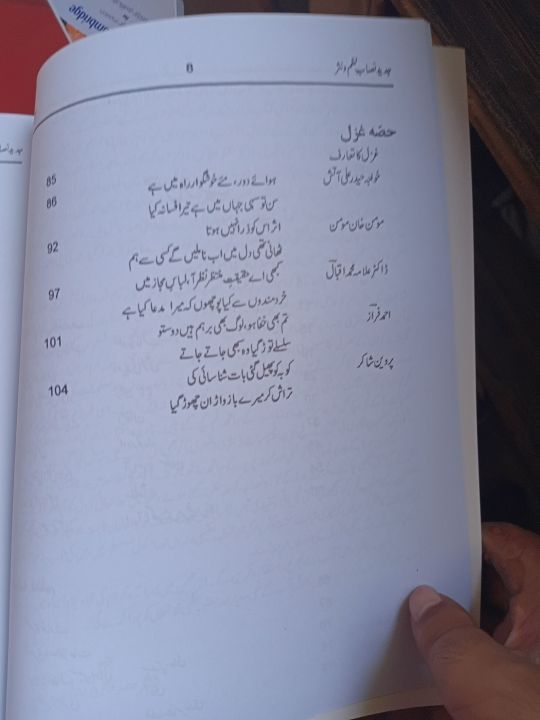 Cambridge
جدید نصاب نظم و نثر
8
حصہ غزل
غزل کا تعارف 85
خواجہ حیدر علی آتش ہوائے دور مئے خوشگوار راہ میں ہے 86
سن تو سہی جہاں میں ہے تیرا فسانہ کیا
مومن خان مومن اثر اس کو ذرا نہیں ہوتا 92
ٹھانی تھی دل میں اب نا ملیں گے کسی سے ہم
ڈاکٹر علامہ محمد اقبالؔ کبھی اے حقیقتِ منتظر نظر آ، لباسِ مجاز میں 97
خردمندوں سے کیا پوچھوں کہ میرا مدعا کیا ہے
احمد فرازؔ تم بھی خفا ہو، لوگ بھی برہم ہیں دوستو 101
سلسلے توڑ گیا وہ بھی جاتے جاتے
پروین شاکر کو بہ کو پھیل گئی بات شناسائی کی 104
تراش کر میرے بازو اڑان چھوڑ گیا